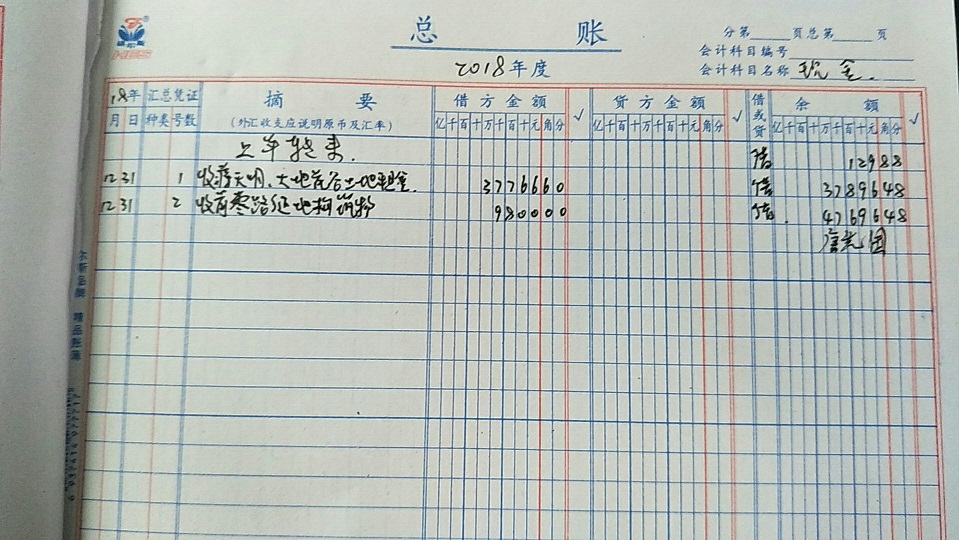 总 账
分第 页总第 页
会计科目编号
2018年度
会计科目名称 现金.
18年 汇总凭证 摘 要 借方金额 √ 贷方金额 √ 借或贷 余 额 √
月 日 种类 号数 (外汇收支应说明原币及汇率) 亿千百十万千百十元角分 亿千百十万千百十元角分 亿千百十万千百十元角分
上年转来. 借 12988
12 31 1 收 天明、大地 土地租金. 3776660 借 3789648
12 31 2 收 980000 借 4769648
精品账簿